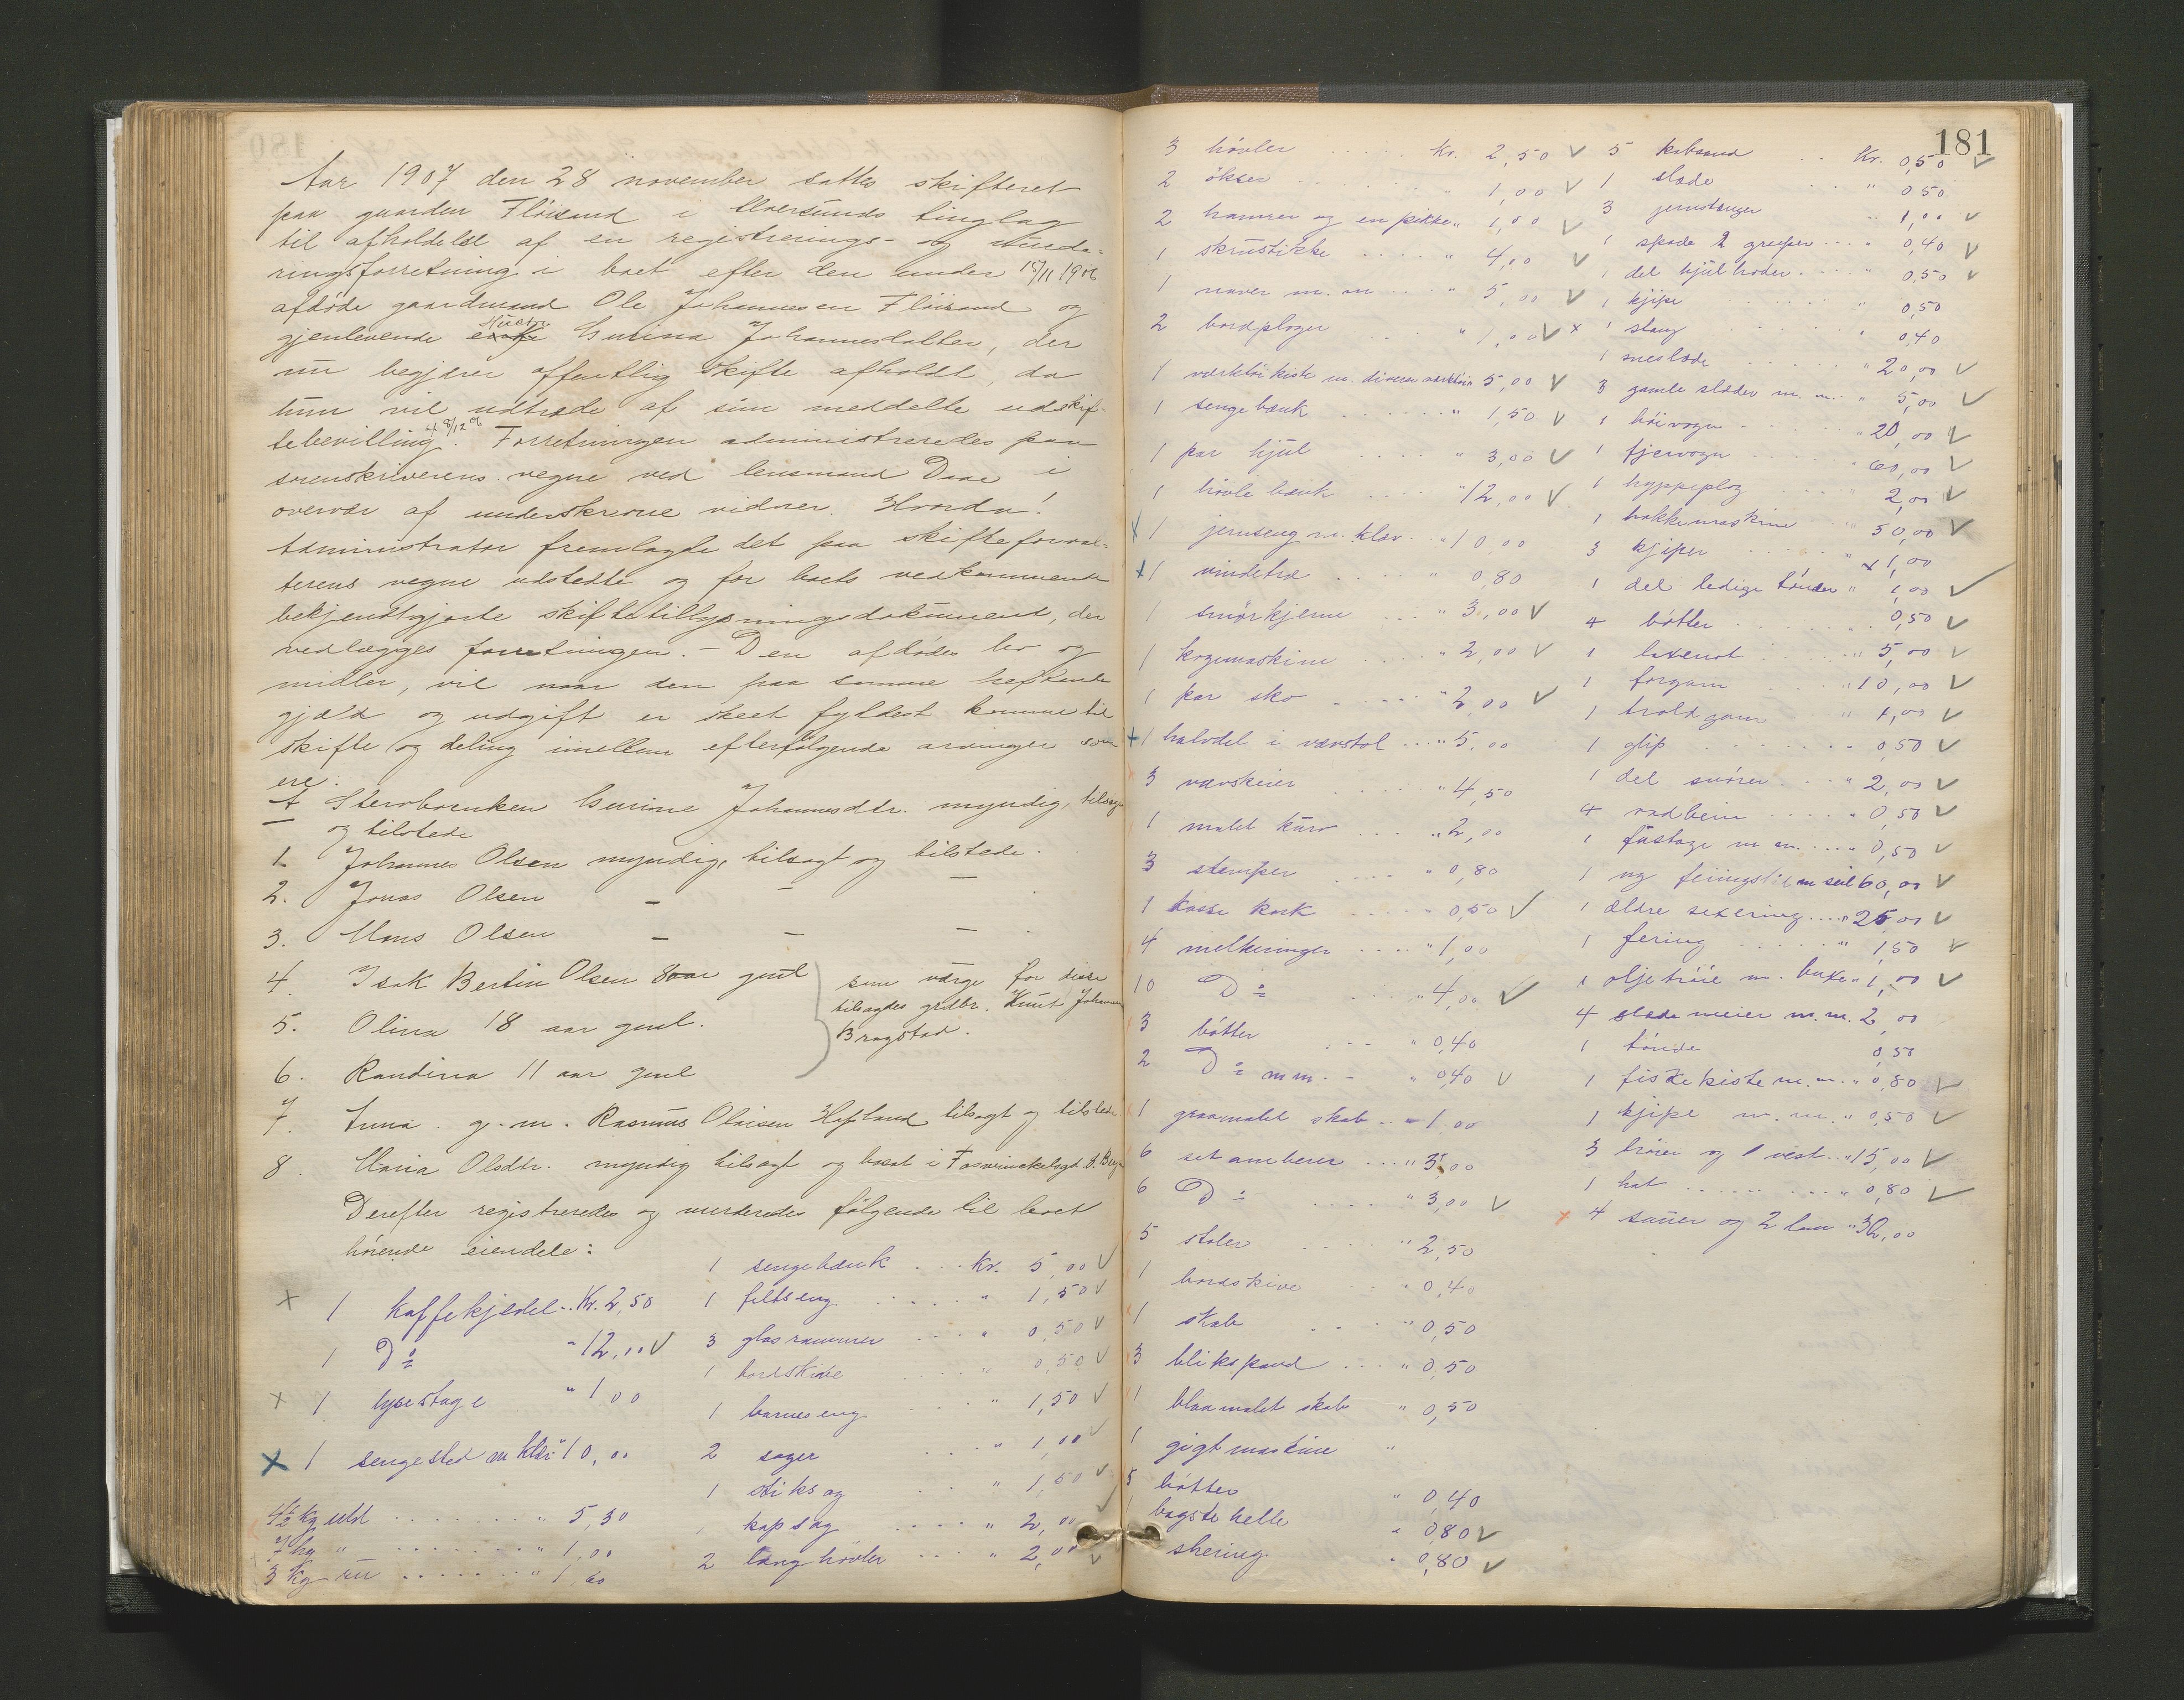 Aar 1907 den 28 november sattes skifteret
paa gaarden Flöisand i Alversunds tinglag
til afholdelse af en registrerings- og vurde-
ringsforretning i boet efter den under 15/11 1906
afdöde gaardmand Ole Johannesen Flöisand og
gjenlevende Hustru Gurina Johannesdatter, der
nu begjærer offentlig skifte afholdt, da
hun vil udtræde af sin meddelte udskif-
tebevilling af 8/12 06. Forretningen administreredes paa
sorenskriverens vegne ved lensmand Daae i
overvær af underskrevne vidner. Hvorda!
Administrator fremlagde det paa skifteforval-
terens vegne udstedte og for boets vedkommende
bekjendtgjorte skiftetillysningsdokument, der
vedlægges forretningen. - Den afdödes bo og
midler, vil naar den paa samme heftende
gjæld og udgift er skeet fyldest komme til
skifte og deling imellem efterfölgende arvinger som
ere:
A Stervboenken Gurine Johannesdtr. myndig, tilsagt
og tilstede
1. Johannes Olsen myndig, tilsagt og tilstede.
2. Jonas Olsen - - -
3. Mons Olsen - - -
4. Isak Bertin Olsen 8 aar gml
5. Olina 18 aar gml.
6. Randina 11 aar gml
som værge for disse
tilsagdes grdbr. Knut Johannes
Bragstad.
7. Anna g. m. Rasmus Olaisen Hopland tilsagt og tilstede
8. Maria Olsdtr. myndig tilsagt og bosat i
Derefter registreredes og vurderedes fölgende til boet
hörende eiendele:
1 kaffekjedel .. Kr. 2,50
1 Do " 12,00 V
1 lysestage " 1,00
1 sengested m klær " 10,00
4½ kg uld " 5,30
7 hg " " 1,00
3 kg " 1,60
1 sengebænk ... Kr. 5,00 V
1 feltseng " 1,50 V
3 glasrammer " 0,50 V
1 bordskive " 0,50 V
1 barneseng " 1,50 V
2 sager " 1,00 V
1 stiksag " 1,50 V
1 kapsag " 2,00 V
2 langhövler " 2,00 V
181
3 hövler Kr. 2,50 V
2 ökser " 1,00 V
2 hamrer og en pikke " 1,00 V
1 skrustikke " 4,00 V
1 naver m. m " 5,00 V
2 bordploger " 1,00 V
1 værktöikiste m. diverse værktöi " 5,00 V
1 sengebænk " 1,50 V
1 par hjul " 3,00 V
1 hövlebænk " 12,00 V
1 jernseng m. klær " 10,00
1 vindetræ " 0,80
1 smörkjerne " 3,00 V
1 kogemaskine " 2,00 V
1 par sko " 2,00 V
1 halvdel i vævstol " 5,00
3 vævskeier " 4,50
1 malet kurv " 2,00
3 stemper " 0,80
1 kasse kork " 0,50 V
4 melkeringer " 1,00
10 Do " 4,00 V
3 bötter " 0,40
2 Do m m. " 0,40 V
1 graamalet skab " 1,00
6 setamberer " 3,00
6 Do " 3,00 V
5 stoler " 2,50
1 bordskive " 0,40
1 skab " 0,50
3 blikspand " 0,50
1 blaamalet skab " 0,50
1 gigtmaskine "
5 bötter " 0,40
1 bagstehelle " 0,80 V
skering " 0,80 V
5 Kr. 0,50 V
1 slæde " 0,50
3 jernstænger " 1,00 V
1 spade 2 greiper " 0,40 V
1 del hjulhoder " 0,50 V
1 kjipe " 0,50
1 stang " 0,40
1 meslæde " 20,00 V
3 gamle slæder m. m. " 5,00 V
1 höivogn " 20,00 V
1 fjervogn " 60,00 V
1 hyppeplog " 2,00 V
1 hakkemaskine " 50,00 V
3 kjiper " 1,00
1 del ledige tönder " 1,00 V
4 bötter " 0,50 V
1 laxenot " 5,00 V
1 forgarn " 10,00 V
1 troldgarn " 1,00 V
1 glip " 0,50 V
1 del snörer " 2,00 V
4 vadbein " 0,50 V
1 fustage m m. " 0,50 V
1 ny m seil 60,00 V
1 ældre sexering " 25,00 V
1 fering " 1,50 V
1 oljetröie m. buxe " 1,00 V
4 slædemeier m. m. 2,00
1 tönde 0,50
1 fiskekiste m. m. " 0,80 V
1 kjipe m. m. " 0,50 V
3 tröier og 1 vest " 15,00 V
1 hat " 0,80 V
4 sauer og 2 lam " 30,00